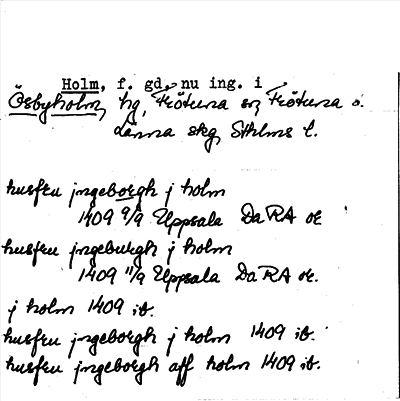 Holm, f. gd, nu ing. i
Ösbyholm, hg, Frötuna sn, Frötuna o.
Länna skg, Sthlms l.
husfru jngeborgh j holm
1409 9/9 Uppsala Da RA or
husfru jngeburgh j holm
1409 11/9 Uppsala Da RA or.
j holm 1409 ib.
husfru jngeborgh j holm 1409 ib.
husfru jngeborgh aff holm 1409 ib.